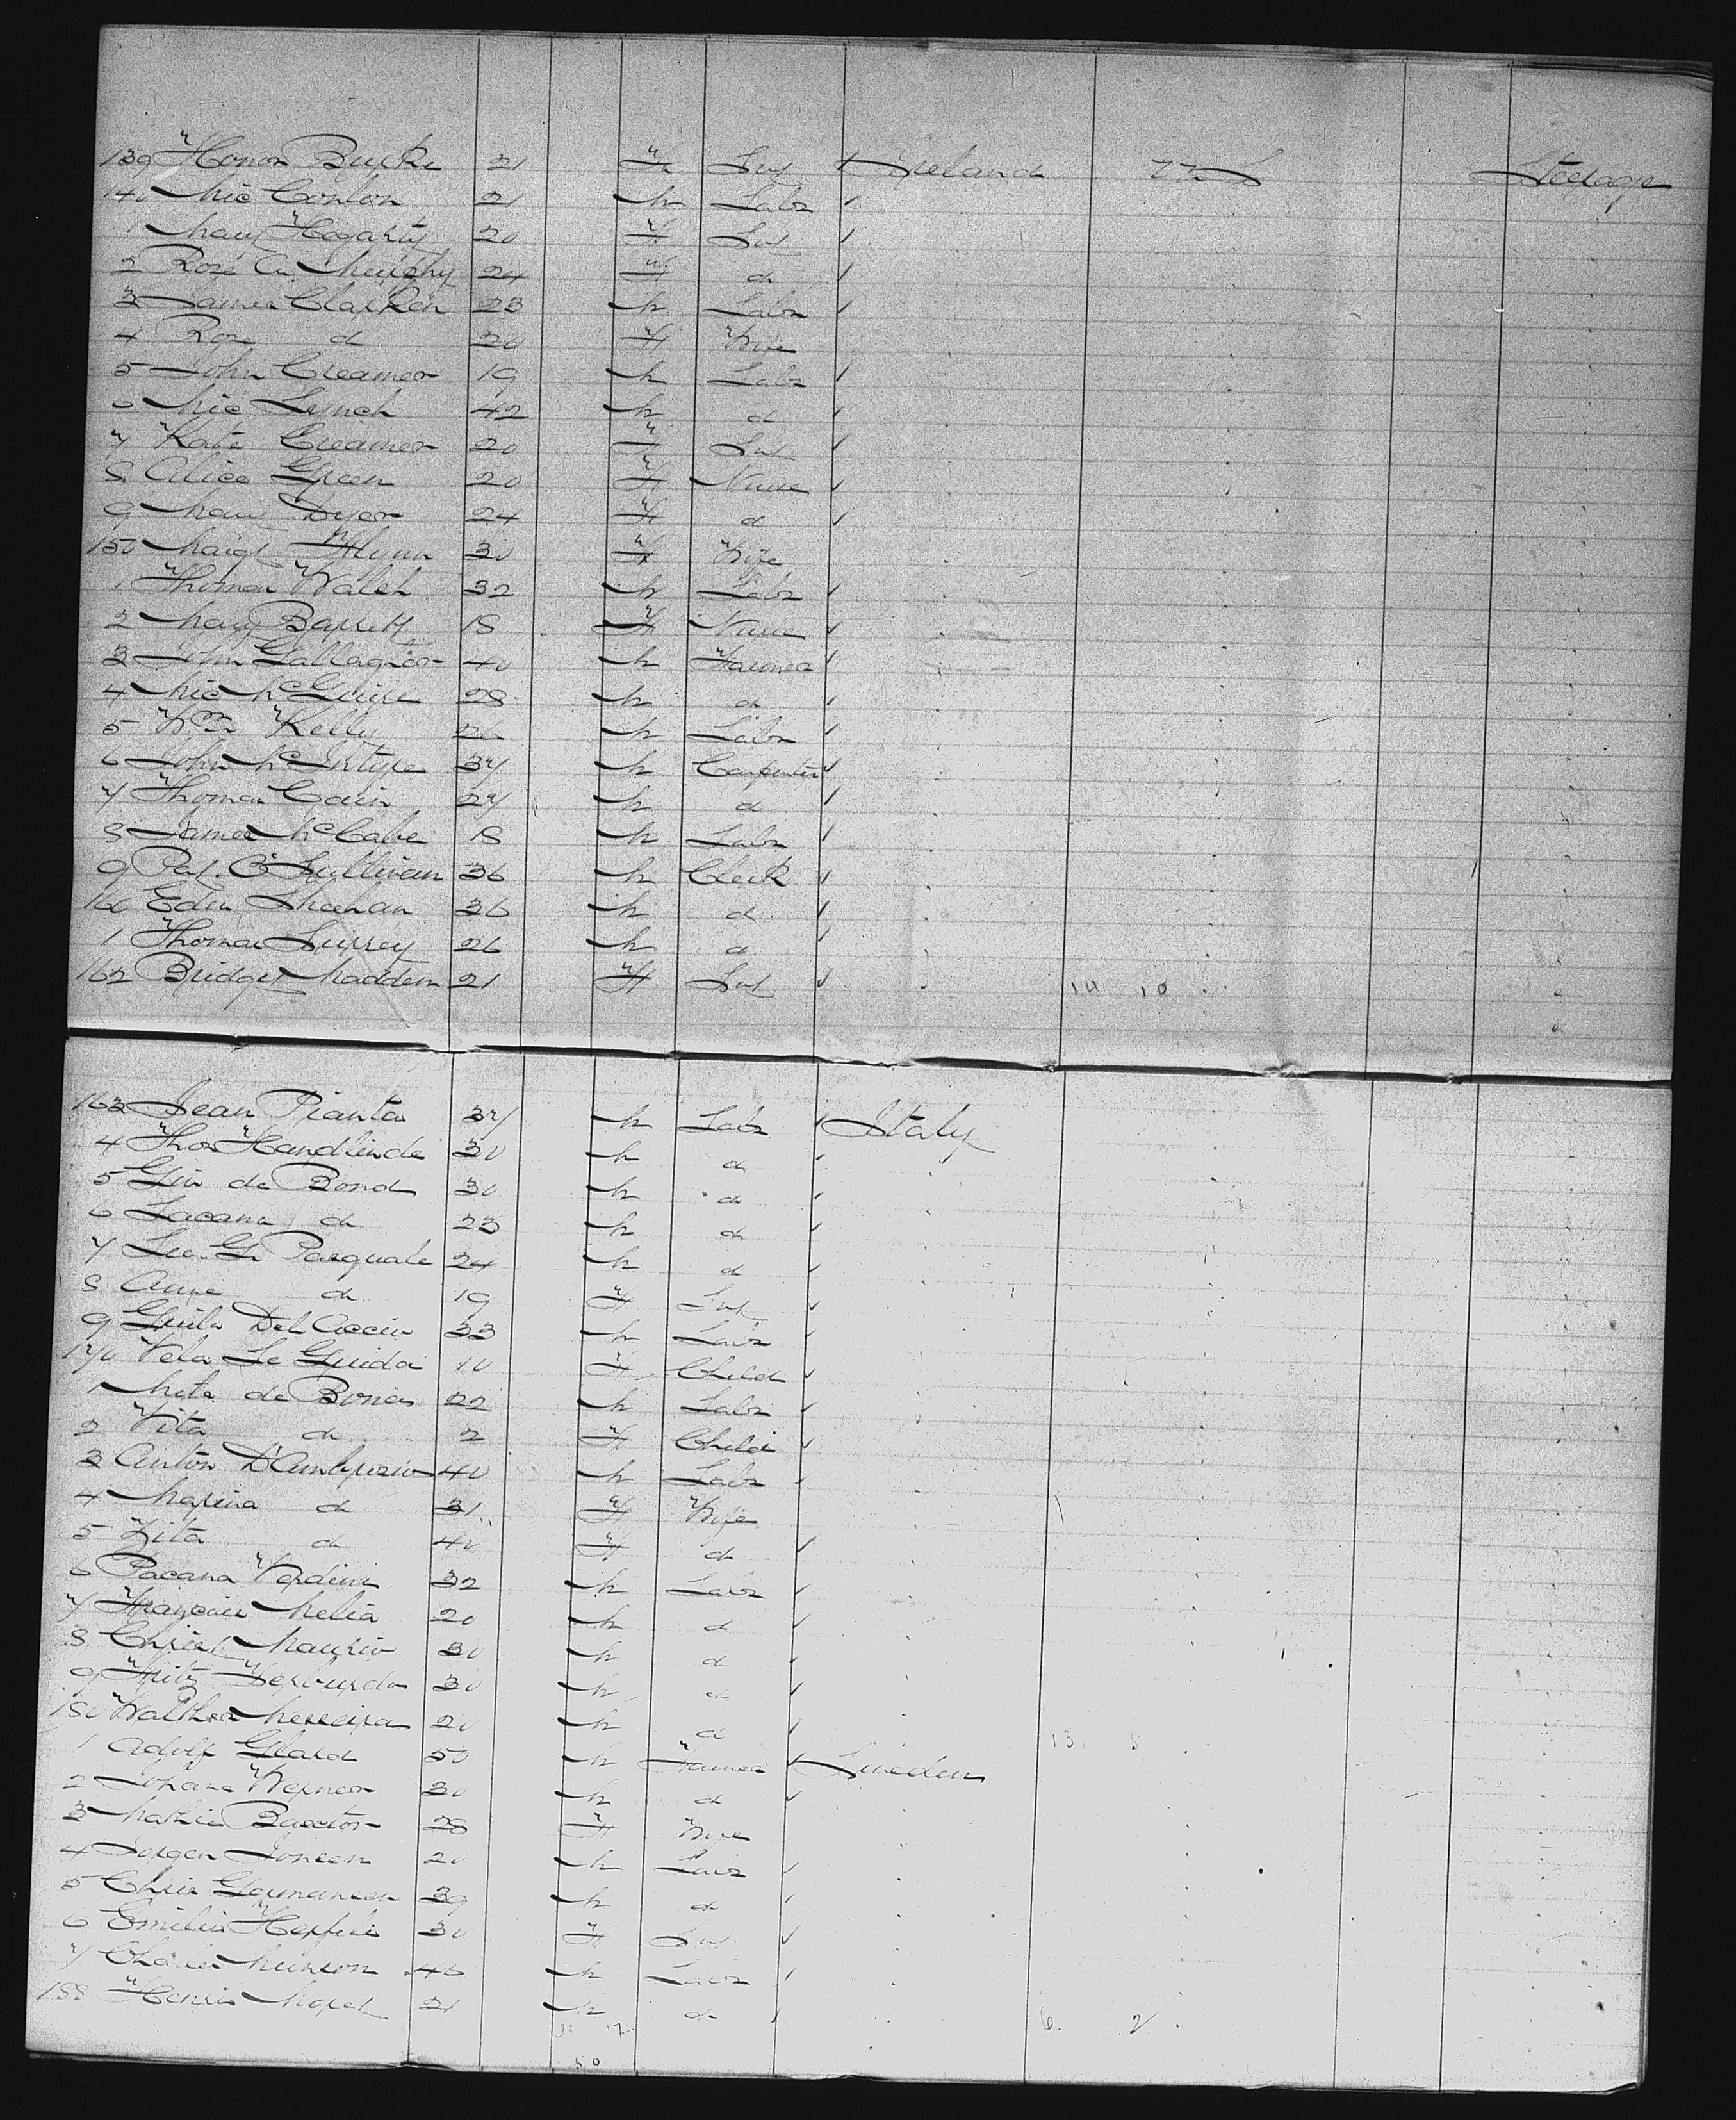 139 Honor Burke 21 F Svt Ireland U S Steerage
140 Mic Conlon 21 M Labr
1 Mary Hogarty 20 F Svt
2 Rose A. Murphy 24 F d
3 James Clarken 23 M Labr
4 Rose d 20 F Wife
5 John Creamer 19 M Labr
6 Mic Lynch 42 M d
7 Kate Creamer 20 F Svt
8 Alice Green 20 F Nurse
9 Mary Dyer 24 F d
150 Margt Flynn 30 F Wife
1 Thomas Walsh 32 M Labr
2 Mary Barrett 18 F Nurse
3 John Gallagher 40 M Farmer
4 Mic McGuire 28 M d
5 Wm Kelly 26 M Labr
6 John McIntyre 37 M Carpenter
7 Thomas Cain 27 M d
8 James McCabe 18 M Labr
9 Pat. O'Sullivan 36 M Clerk
160 Edm Sheehan 36 M d
1 Thomas Furrey 26 M d
162 Bridget Madden 21 F Svt 14 10
163 Jean Pianta 37 M Labr Italy
4 Thos 30 M d
5 Giu de Bond 30 M d
6 Lacana d 23 M d
7 Lu. G. Pasquale 24 M d
8 Anne d 19 F Svt
9 Del Accio 33 M Labr
170 Vela Le Guida 10 F Child
1 de Bonas 22 M Labr
2 Vita d 2 F Child
3 Anton D'Ambrosio 40 M Labr
4 Marina d 31 F Wife
5 Zita d 40 F d
6 Pacana Verdini 32 M Labr
7 Francois Melia 20 M d
8 Christ Maurio 30 M d
9 Fritz 30 M d
180 Walther 20 M d 13 5
1 Adolf 50 M Farmer Sweden
2 Johane Werner 30 M d
3 28 F Wife
4 Jorgen Jonsen 20 M Labr
5 Chris 39 M d
6 Emilie 30 F Svt
7 Charles Munson 46 M Labr
188 Henri Morel 21 M d 6 2
33 17
50